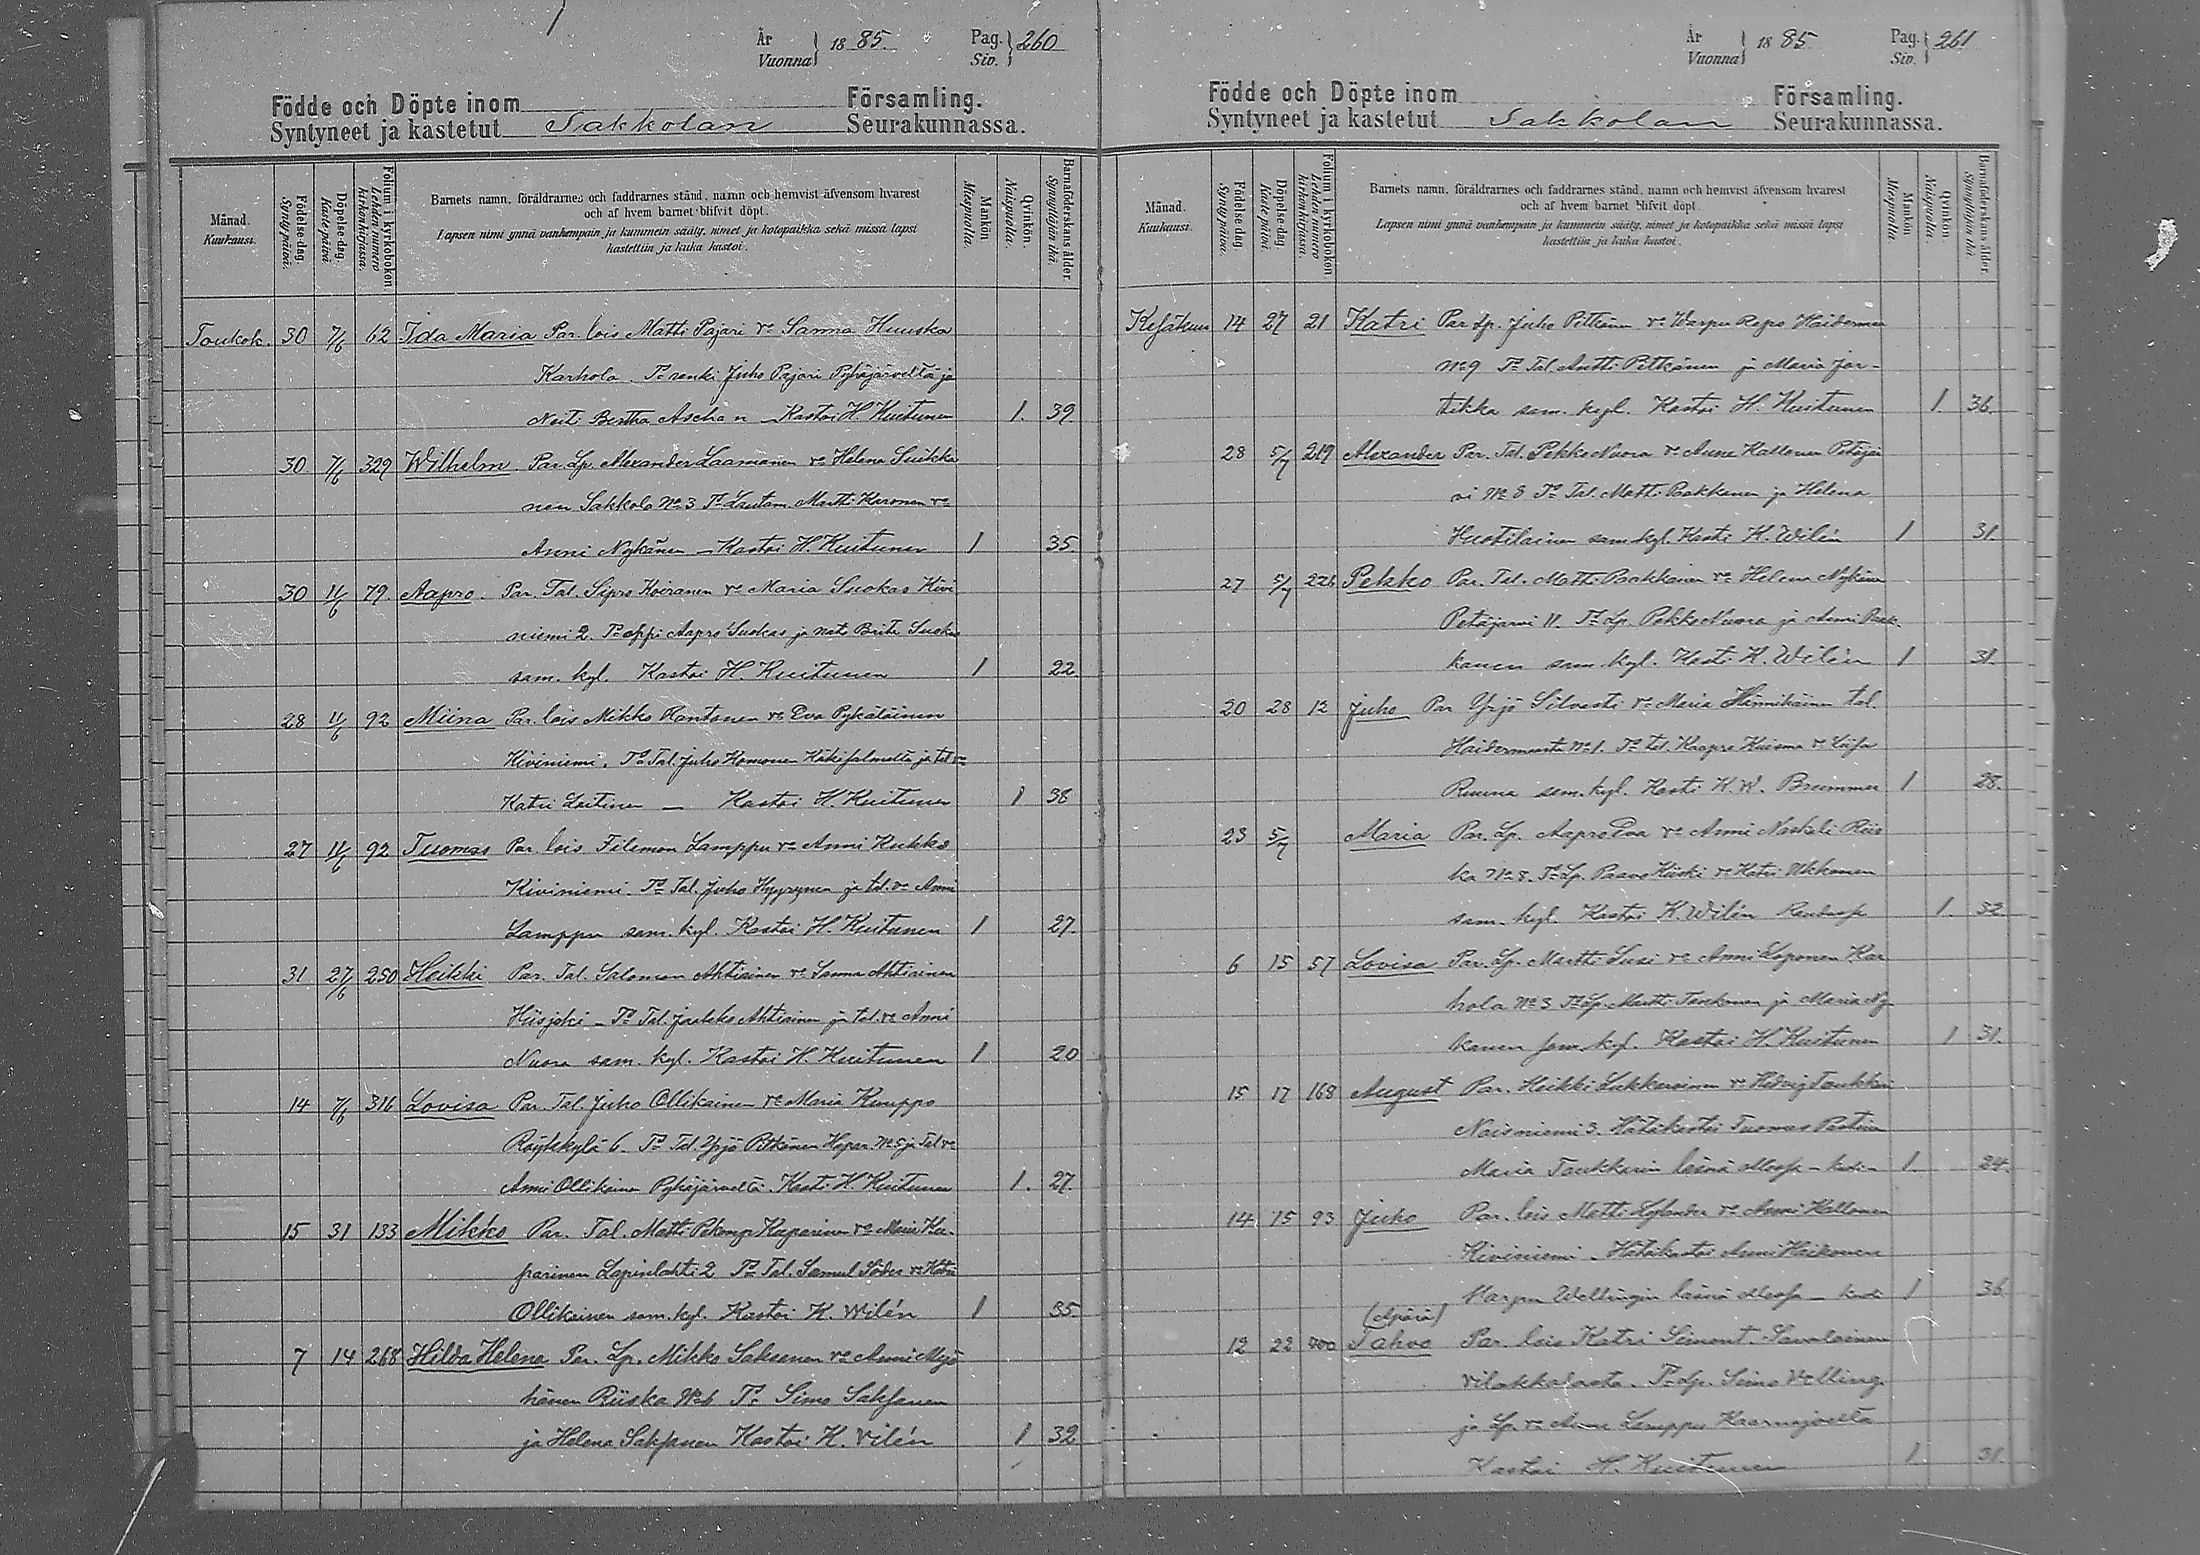 År
Vuonna
18 85.
Pag.
Siv.
260
Födde och Döpte inom Församling.
Syntyneet ja kastetut Sakkolan Seurakunnassa.
Månad.
Kuukausi.
Födelse-dag.
Syntypäivä.
Döpelse-dag.
Kastepäivä.
Folium i kyrkoboken
Lehden numero
kirkonkirjassa.
Barnets namn, föräldrarnes och faddrarnes stånd, namn och hemvist äfvensom hvarest
och af hvem barnet blifvit döpt.
Lapsen nimi ynnä vanhempain ja kummein sääty, nimet ja kotopaikka sekä missä lapsi
kastettiin ja kuka kastoi.
Mankön
Miespuolia.
Qvinkön.
Naispuolia.
Barnaföderskans ålder.
Synnyttäjän ikä.
Toukok. 30 7/6 62 Ida Maria Par. lois Matti Pajari vo Sanna Huuska
Karhola. To renki Juho Pajari Pyhäjärveltä ja
Neiti Bertha Aschan – Kastoi H. Kuitunen 1. 39.
30 7/6 329 Wilhelm Par. Lp. Alexander Laamanen vo Helena Suikka
nen Sakkola No 3 To Lautam. Martti Karonen vo
Anni Nykänen – Kastoi H. Kuitunen 1 35
30 11/6 79. Aapro. Par. Tal. Sipro Koiranen vo Maria Suokas Kivi
niemi 2. To oppi Aapro Suokas ja nato Brita Suokas
sam. kyl. Kastoi H. Kuitunen 1 22
28 11/6 92 Miina Par. lois Mikko Kantonen vo Eva Pykäläinen
Kiviniemi. To Tal. Juho Homonen Käkisalmelta ja tal vo
Katri Laitinen – Kastoi H. Kuitunen 1 38
27 11/6 92 Tuomas Par. lois Filemon Lamppu vo Anni Kukko
Kiviniemi. To Tal. Juho Hyyrynen ja tal. vo Anni
Lamppu sam. kyl. Kastoi H. Kuitunen 1 27.
31 27/6 250 Heikki Par. Tal. Salomon Ahtiainen vo Sanna Ahtiainen
Hiisjoki – To Tal. Jaakko Ahtiainen ja tal. vo Anni
Nuora sam. kyl. Kastoi H. Kuitunen 1 20
14 7/6 316 Lovisa Par. Tal. Juho Ollikainen vo Maria Kumppo
Röykkylä 6. To Tal. Yrjö Pitkänen No 5 ja Tal vo
Anni Ollikainen Pyhäjärveltä. Kasti H. Kuitunen 1. 27.
15 31 133 Mikko Par. Tal. Matti Kaparinen vo Maria Ka-
parinen Lapinlahti 2 To Tal. Samuel Söder vo Katri
Ollikainen sam. kyl. Kastoi K. Wilén 1 35
7 14 268 Hilda Helena Par. Lp. Mikko Saksanen vo Anni Myö
hänen Riiska No 6 To Simo Saksanen
ja Helena Saksanen Kastoi K. Vilén 1 32
År
Vuonna
18 85.
Pag.
Siv.
261
Födde och Döpte inom Församling.
Syntyneet ja kastetut Sakkolan Seurakunnassa.
Månad.
Kuukausi.
Födelse-dag.
Syntypäivä.
Döpelse-dag.
Kastepäivä.
Folium i kyrkoboken
Lehden numero
kirkonkirjassa.
Barnets namn, föräldrarnes och faddrarnes stånd, namn och hemvist äfvensom hvarest
och af hvem barnet blifvit döpt.
Lapsen nimi ynnä vanhempain ja kummein sääty, nimet ja kotopaikka sekä missä lapsi
kastettiin ja kuka kastoi.
Mankön
Miespuolia.
Qvinkön.
Naispuolia.
Barnaföderskans ålder.
Synnyttäjän ikä.
Kesäkuu 14 27 21 Katri Par. Lp. Juho Pitkänen vo Warpu Repo Haiderman
No 9 To Tal. Antti Pitkänen ja Maria Jor-
tikka sam. kyl. Kastoi H. Kuitunen 1. 36.
28 5/7 219 Alexander Par. Tal. Pekko Nuora vo Anna Kallonen Petäjär
vi No 8 To Tal. Matti Paakkanen ja Helena
Huotilainen sam. kyl. Kasti K. Wilén 1 31.
27 5/7 226 Pekko Par. Tal. Matti Paakkanen vo Helena Nykänen
Petäjärvi 11. To Lp. Pekko Nuora ja Anni Paak-
kanen sam. kyl. Kasti K. Wilén 1 31.
20 28 12 Juho Par Yrjö Silvasti vo Maria Hännikäinen tal.
Haidermaasta No 1. To tal. Kaapro Kuisma vo Loisa
Ruuna sam. kyl. Kasti K. W. Brummer 1 28.
23 5/7 Maria Par. Lp. Aapro vo Anni Naskali Riis
ka No 8. To Lp. Paavo Kiiski vo Katri Ukkonen
sam. kyl. Kastoi K. Wilén 1. 32
6 15 57 Lovisa Par. Lp. Martti Susi vo Anni Loponen Kar
hola No 3 To Lp. Martti Tarkonen ja Maria Ny
känen sam. kyl. Kastoi H. Kuitunen 1 31.
15 17 168 August Par. Heikki Lukkaroinen vo Hedvig Taukkari
Noisniemi 3. Hätäkastoi Tuomas
Maria Taukkarin läsnä ollessa – 1. 24.
14 15 93 Juho Par. lois Matti Nylander vo Anni Kallonen
Kiviniemi. Hätäkastoi Anni Haikonen
Warpu Wellingin läsnä ollessa – 1 36
(Äpärä)
12 22 400 Tahvo Par. lois Katri Simont. Savolainen
. To Lp. Simo Velling
ja Lp. vo Anna Lamppu Kaarnajoelta
Kastoi H. Kuitunen 1 31.